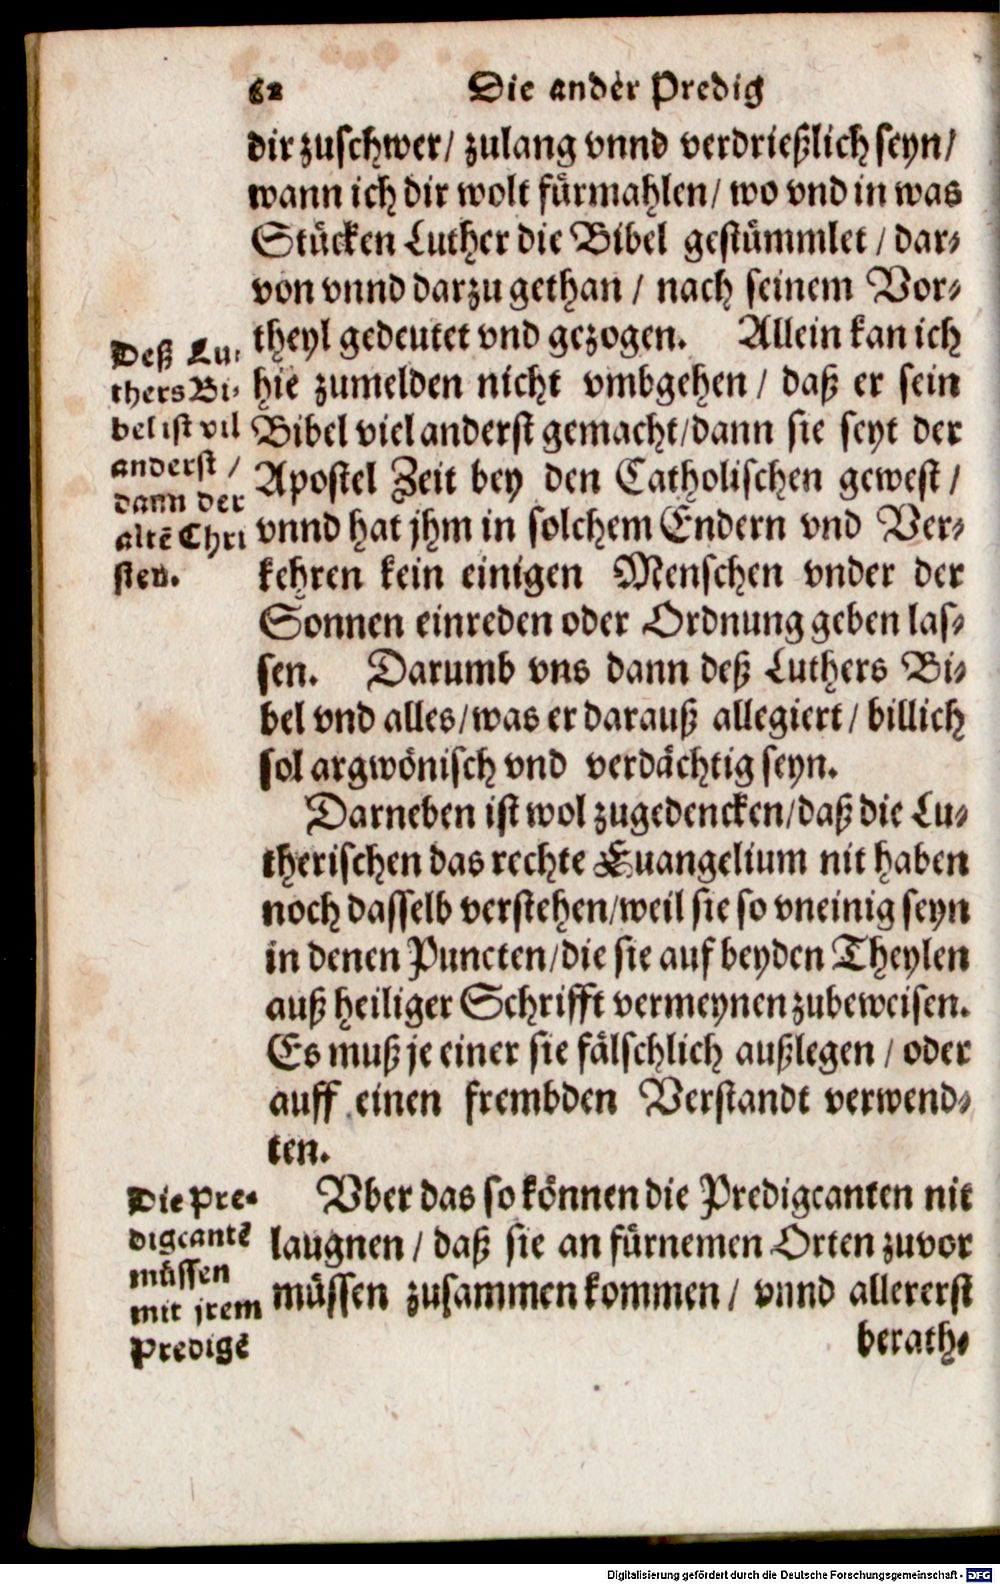 62 Die ander Predig
dir zuschwer/ zulang vnnd verdrießlich seyn/
wann ich dir wolt fürmahlen/ wo vnd in was
Stücken Luther die Bibel gestümmlet / dar-
von vnnd darzu gethan / nach seinem Vor-
theyl gedeutet vnd gezogen. Allein kan ich
hie zumelden nicht vmbgehen / daß er sein
Bibel viel anderst gemacht/dann sie seyt der
Apostel Zeit bey den Catholischen gewest /
vnnd hat jhm in solchem Endern vnd Ver-
kehren kein einigen Menschen vnder der
Sonnen einreden oder Ordnung geben las-
sen. Darumb vns dann deß Luthers Bi-
bel vnd alles/was er darauß allegiert/ billich
sol argwönisch vnd verdächtig seyn.
Deß Lu-
thers Bi-
bel ist vil
anderst /
dann der
altē Chri
sten.
Darneben ist wol zugedencken/daß die Lu-
therischen das rechte Euangelium nit haben
noch dasselb verstehen/weil sie so vneinig seyn
in denen Puncten/die sie auf beyden Theylen
auß heiliger Schrifft vermeynen zubeweisen.
Es muß je einer sie fälschlich außlegen / oder
auff einen frembden Verstandt verwend-
ten.
Vber das so können die Predigcanten nit
laugnen / daß sie an fürnemen Orten zuvor
müssen zusammen kommen / vnnd allererst
berath-
Die Pre-
digcantē
müssen
mit jrem
Predigē
Digitalisierung gefördert durch die Deutsche Forschungsgemeinschaft - DFG